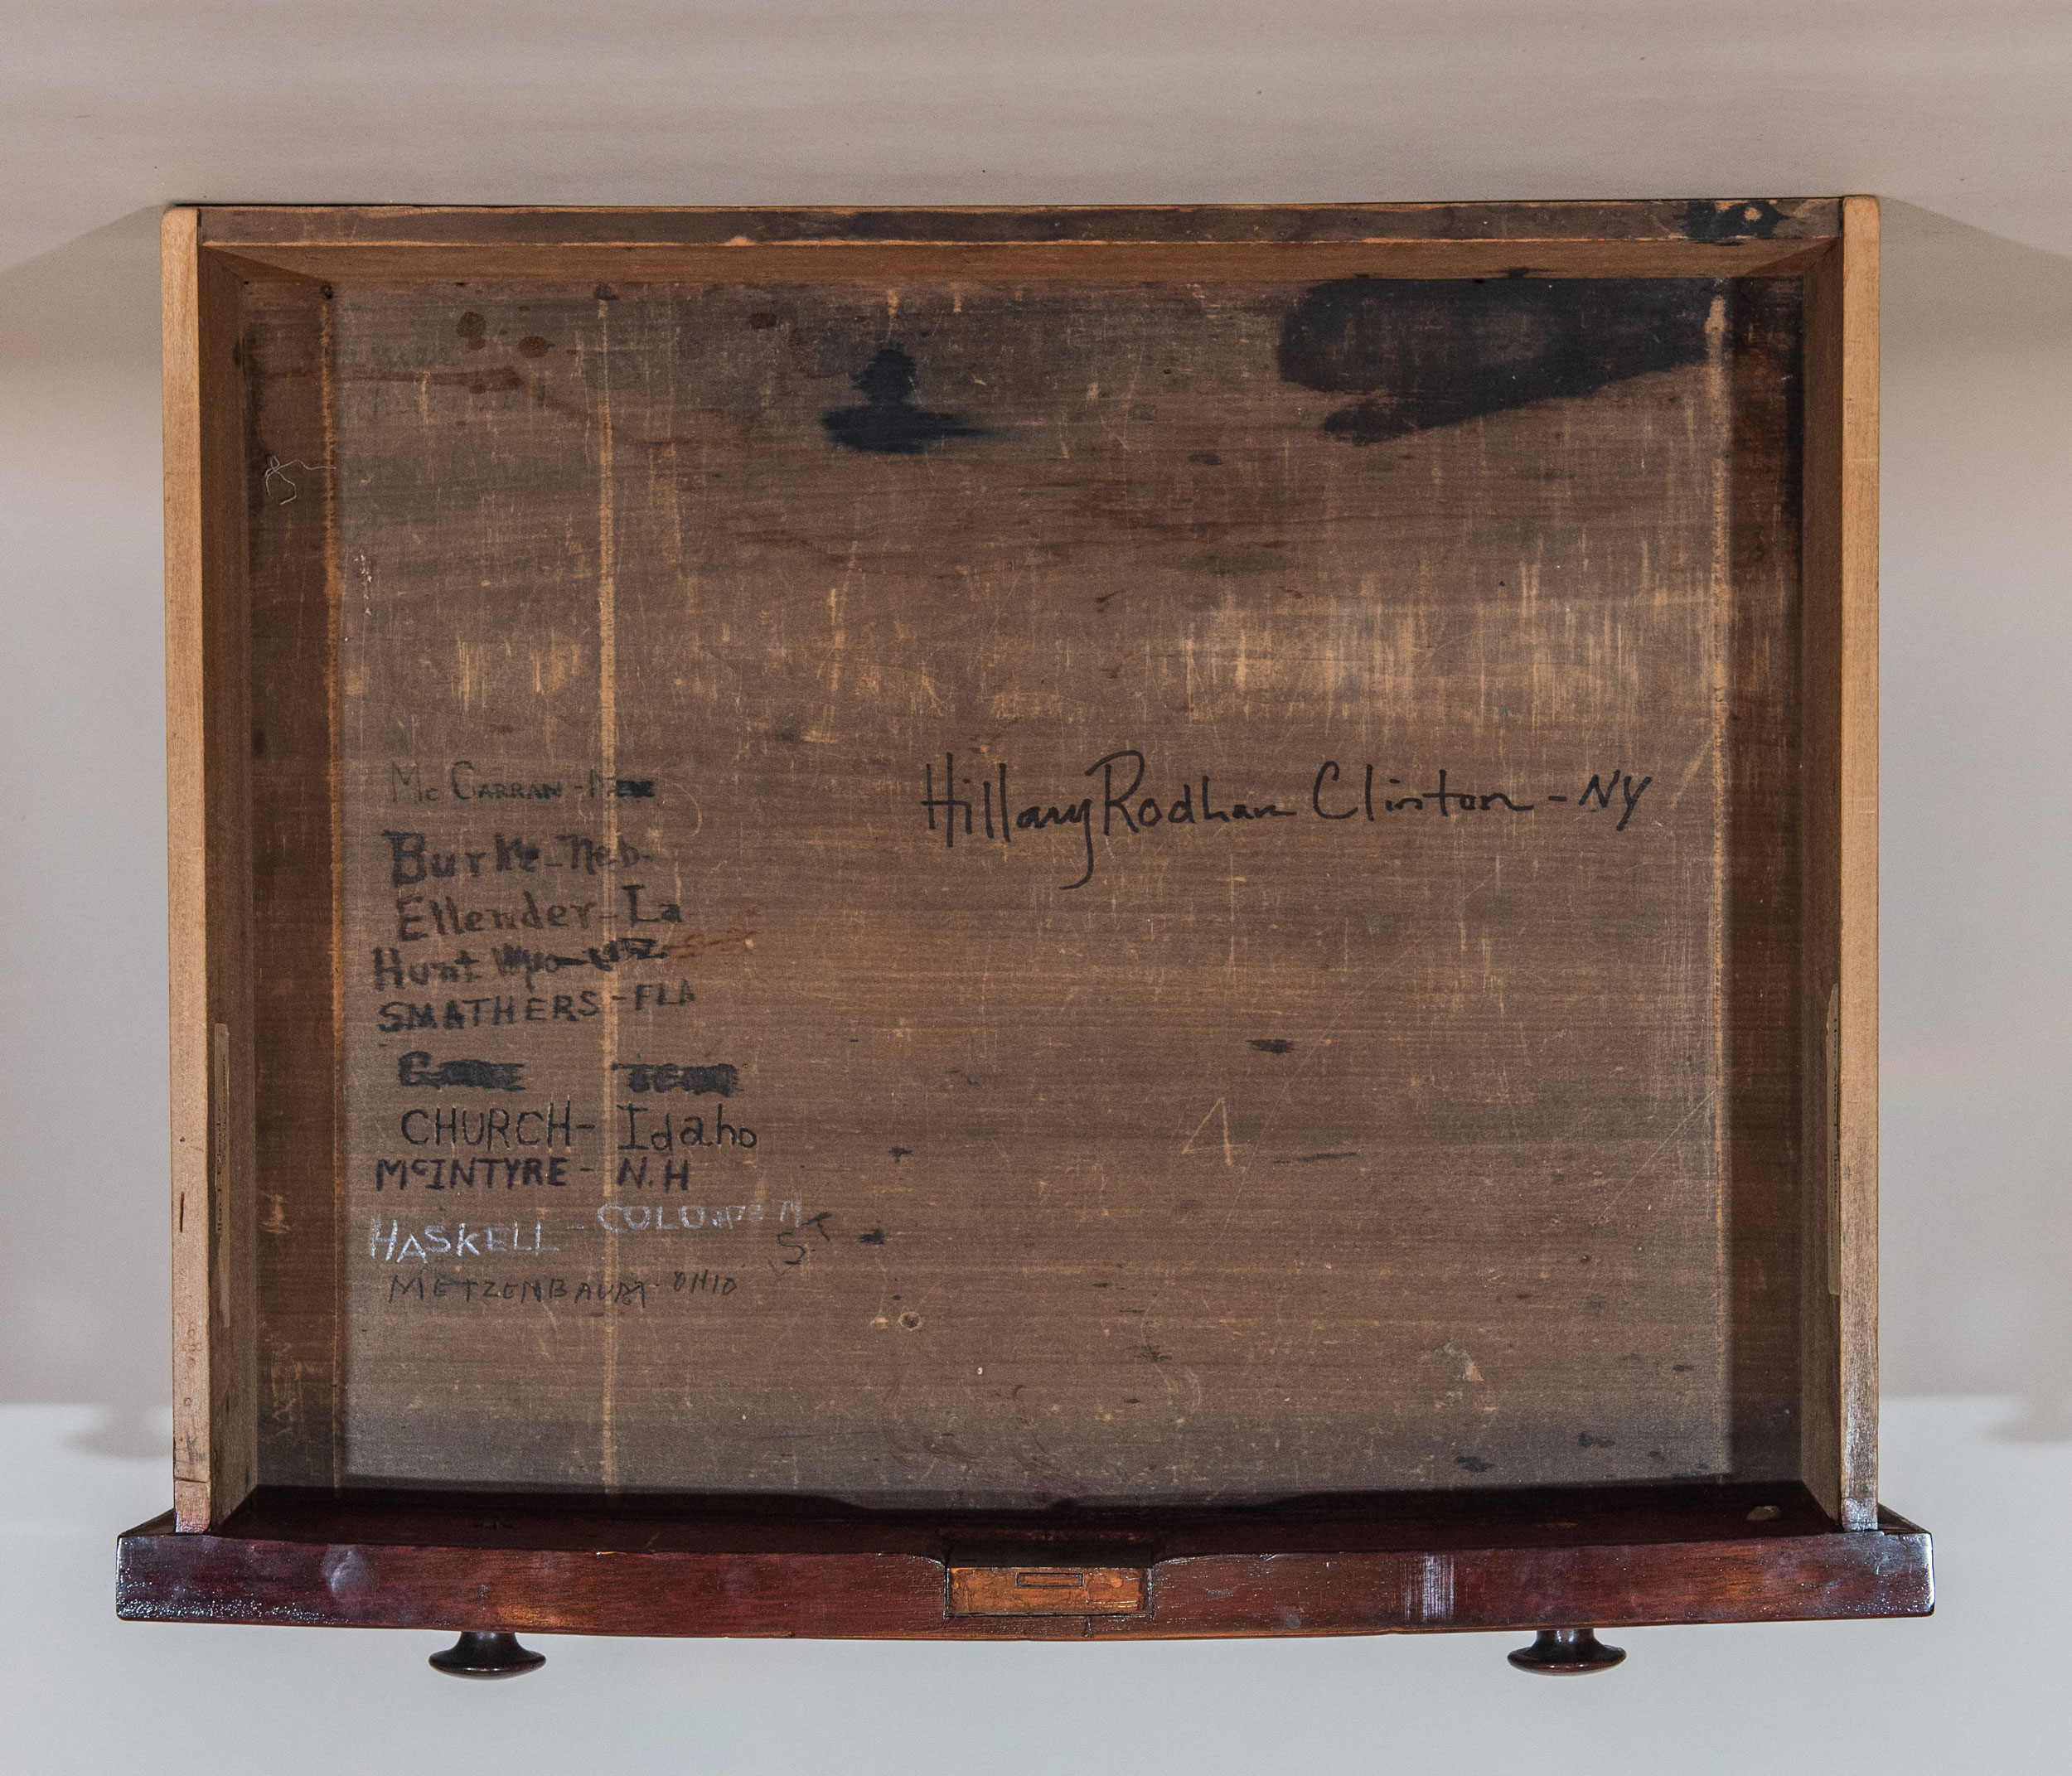 McCarran -
Burke - Neb.
Ellender - La
Hunt Wyo
SMATHERS - FLA
CHURCH - Idaho
McINTYRE - N.H
HASKELL - COLO
METZENBAUM - OHIO
Hillary Rodham Clinton - NY
4